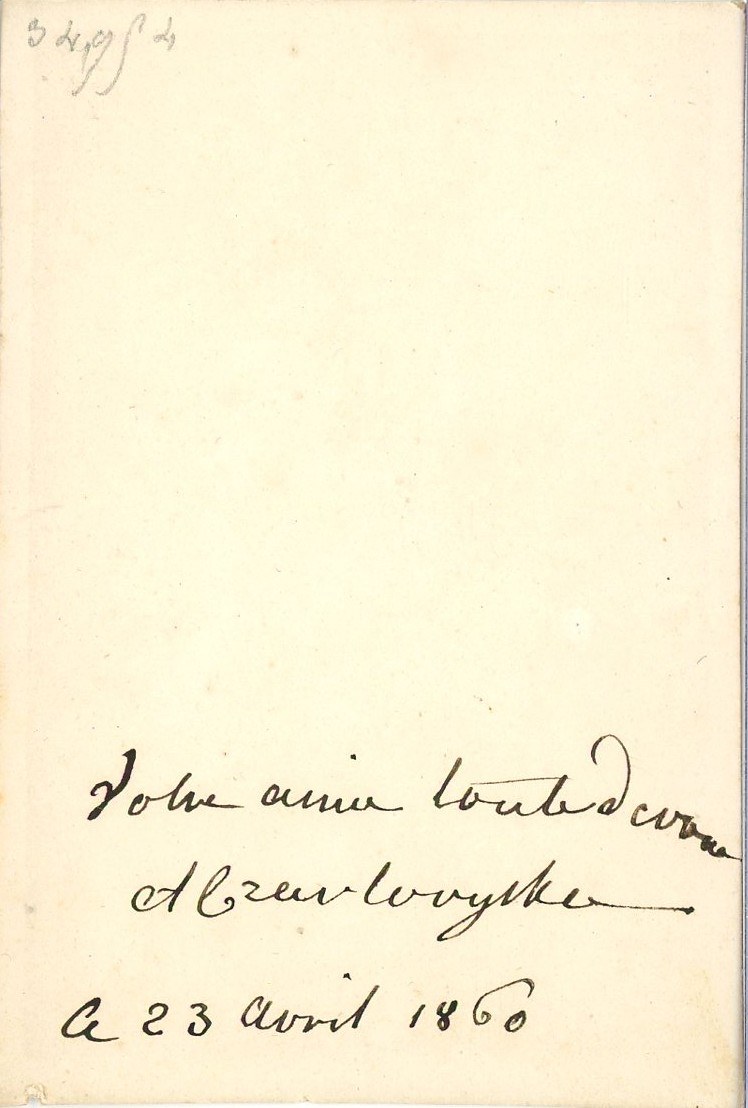 34954
Votre amie toute dévouée
A Czartoryska
le 23 avril 1860